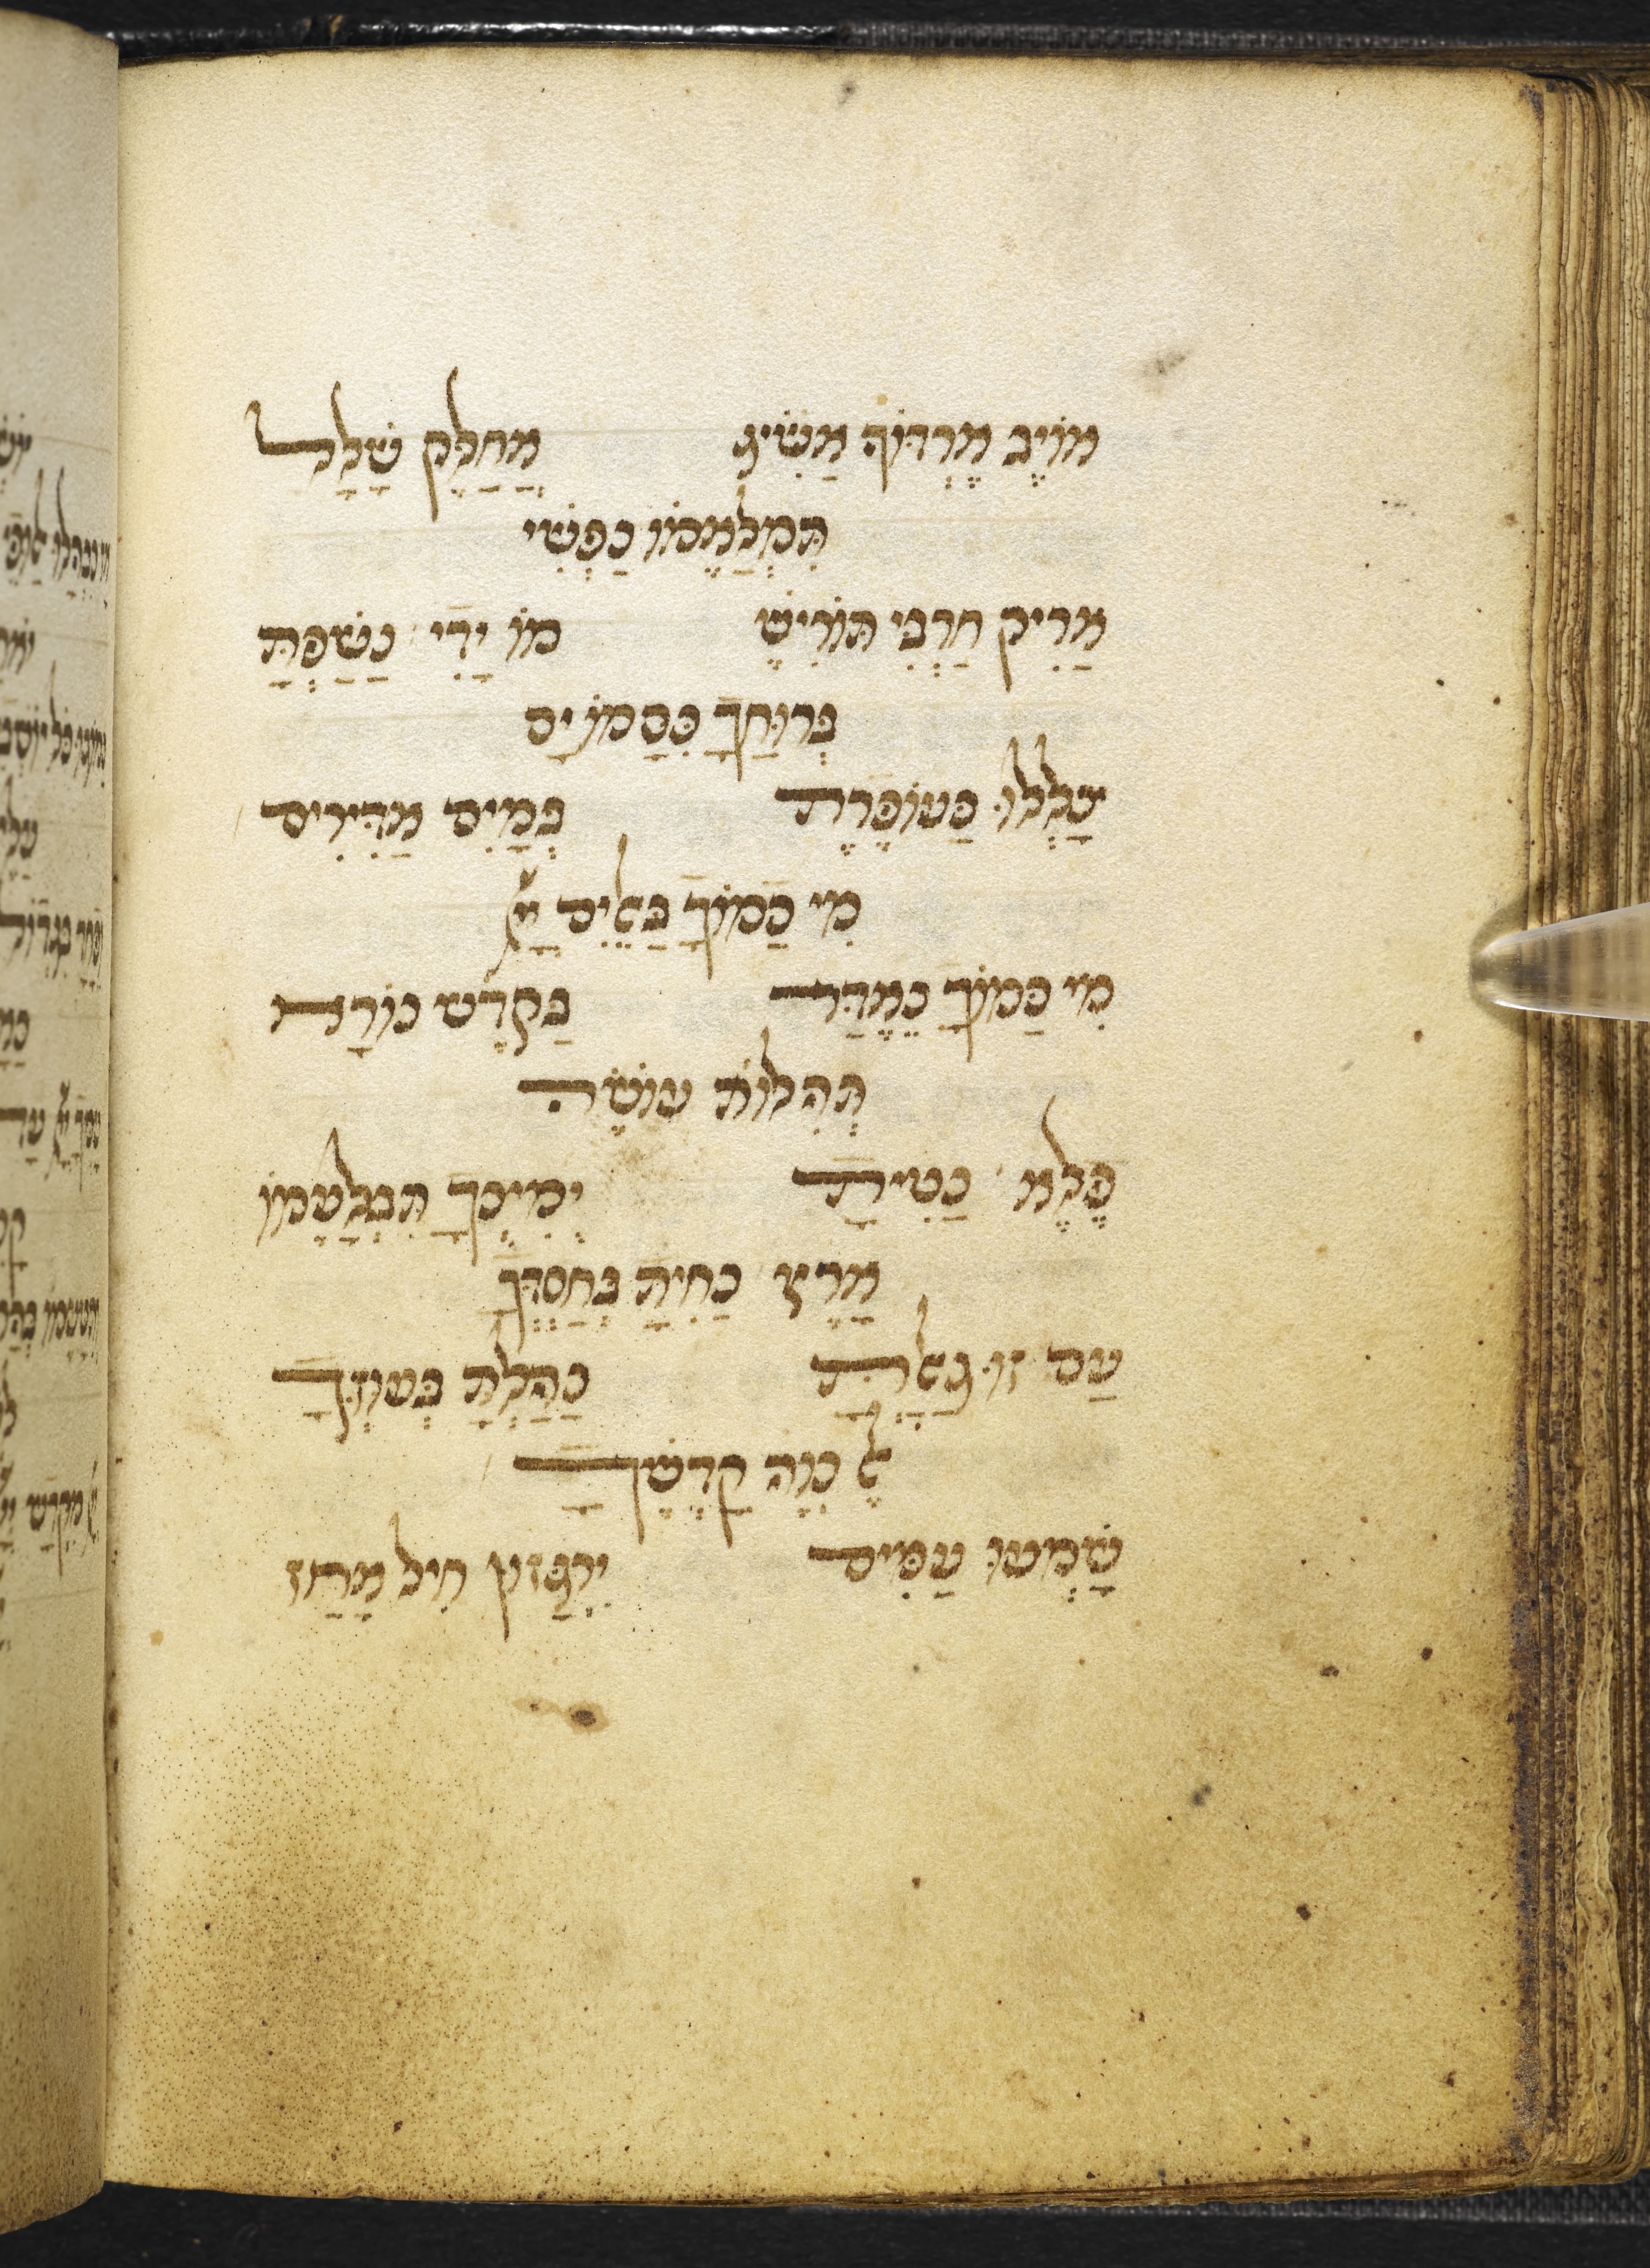 אוֹיֶב אֶרְדּוֹף אַשִּׂיג אֲחַלֶּק שָׁלָל
תִּמְלָאֶמוֹ נַפְשִׁי
אָרִיק חַרְבִּי תּוֹרִישֶׁ מוֹ יָדִי נַשַׁפְתָּ
בְּרוּחַךָ כִּסָּמוֹ יָם
צָלְלוּ כַּעוֹפֶרֶת בְּמַיִם אַדִּירִים
מִי כַמוֹךָ בַּאֵלִים יָיָ
מִי כַּמוֹךָ נֶאֶדַּר בַּקֹּדֶשׁ נוֹרָא
תְּהִלוֹת עוֹשֶׂה
פֶלֶא נַטִיתָ יְמִינְךָ תִּבְלָעֶמוֹ
אָרֶץ נַחִיתָ בְּחַסְדְּךָ
עַם זוּ גָּאָלְתָּ נַהַלְתָּ בְּעוֹזְּךָ
אֶל נְוֶה קָדְשֶׁךָ
שָׁמְעוּ עַמִּים יִרְגַּזוּן חִיל אָחַז